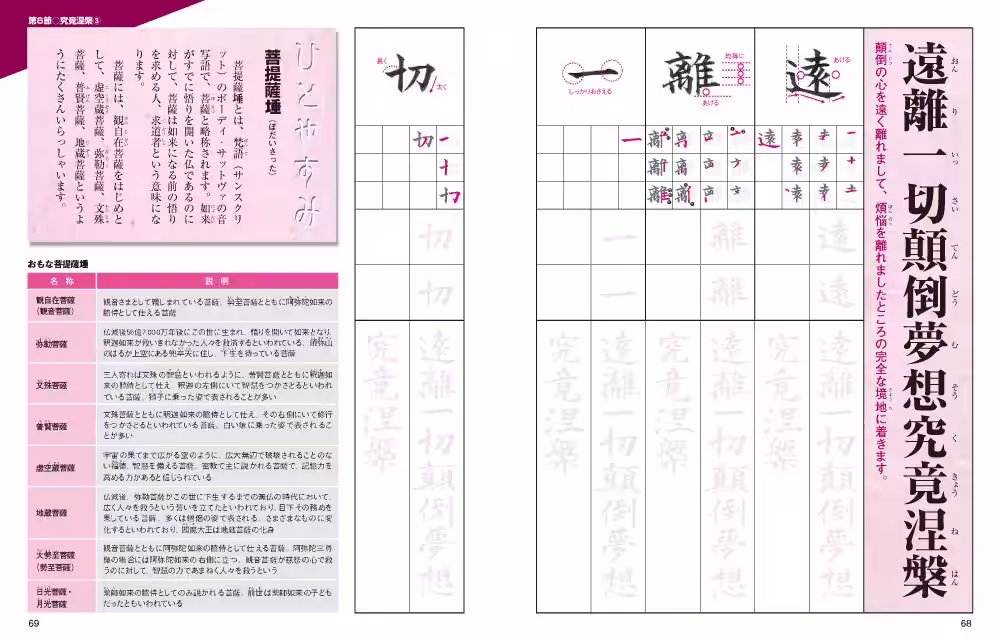 遠離一切顛倒夢想究竟涅槃
おん り いっ さい てん どう む そう く きょう ね はん
顛倒の心を遠く離れまして、煩悩を離れましたところの完全な境地に着きます。
遠
あける
離
均等に
あける
一
しっかりおさえる
遠 離 一
遠 離 一
遠離一切顛倒夢想
究竟涅槃
遠離一切顛倒夢想
究竟涅槃
68
切
長く
太く
切
切
切
遠離一切顛倒夢想
究竟涅槃
第6節○究竟涅槃③
ひとやすみ
菩提薩埵(ぼだいさった)
菩提薩埵とは、梵語(サンスクリ
ット)のボーディ・サットヴァの音
写語で、菩薩と略称されます。如来
がすでに悟りを開いた仏であるのに
対して、菩薩は如来になる前の悟り
を求める人、求道者という意味にな
ります。
菩薩には、観自在菩薩をはじめと
して、虚空蔵菩薩、弥勒菩薩、文殊
菩薩、普賢菩薩、地蔵菩薩というよ
うにたくさんいらっしゃいます。
おもな菩提薩埵
名 称 説 明
観自在菩薩
(観音菩薩)
観音さまとして親しまれている菩薩。勢至菩薩とともに阿弥陀如来の
脇侍として仕える菩薩
弥勒菩薩
仏滅後56億7,000万年後にこの世に生まれ、悟りを開いて如来となり、
釈迦如来が救いきれなかった人々を救済するといわれている。須弥山
のはるか上空にある兜率天に住し、下生を待っている菩薩
文殊菩薩
三人寄れば文殊の智慧といわれるように、普賢菩薩とともに釈迦如
来の脇侍として仕え、釈迦の左側にいて智慧をつかさどるといわれ
ている菩薩。獅子に乗った姿で表されることが多い
普賢菩薩
文殊菩薩とともに釈迦如来の脇侍として仕え、その右側にいて修行
をつかさどるといわれている菩薩。白い象に乗った姿で表されるこ
とが多い
虚空蔵菩薩
宇宙の果てまで広がる空のように、広大無辺で破壊されることのな
い福徳、智慧を備える菩薩。密教で主に説かれる菩薩で、記憶力を
高める力があると信じられている
地蔵菩薩
仏滅後、弥勒菩薩がこの世に下生するまでの無仏の時代において、
広く人々を救うという誓いを立てたといわれており、目下その務めを
果している菩薩。多くは僧侶の姿で表される。さまざまなものに変
化するといわれており、閻魔大王は地蔵菩薩の化身
大勢至菩薩
(勢至菩薩)
観音菩薩とともに阿弥陀如来の脇侍として仕える菩薩。阿弥陀三尊
像の場合には阿弥陀如来の右側に立つ。観音菩薩が慈悲の心で救
うのに対して、智慧の力であまねく人々を救うという
日光菩薩・
月光菩薩
薬師如来の脇侍としてのみ説かれる菩薩。前世は薬師如来の子ども
だったともいわれている
69